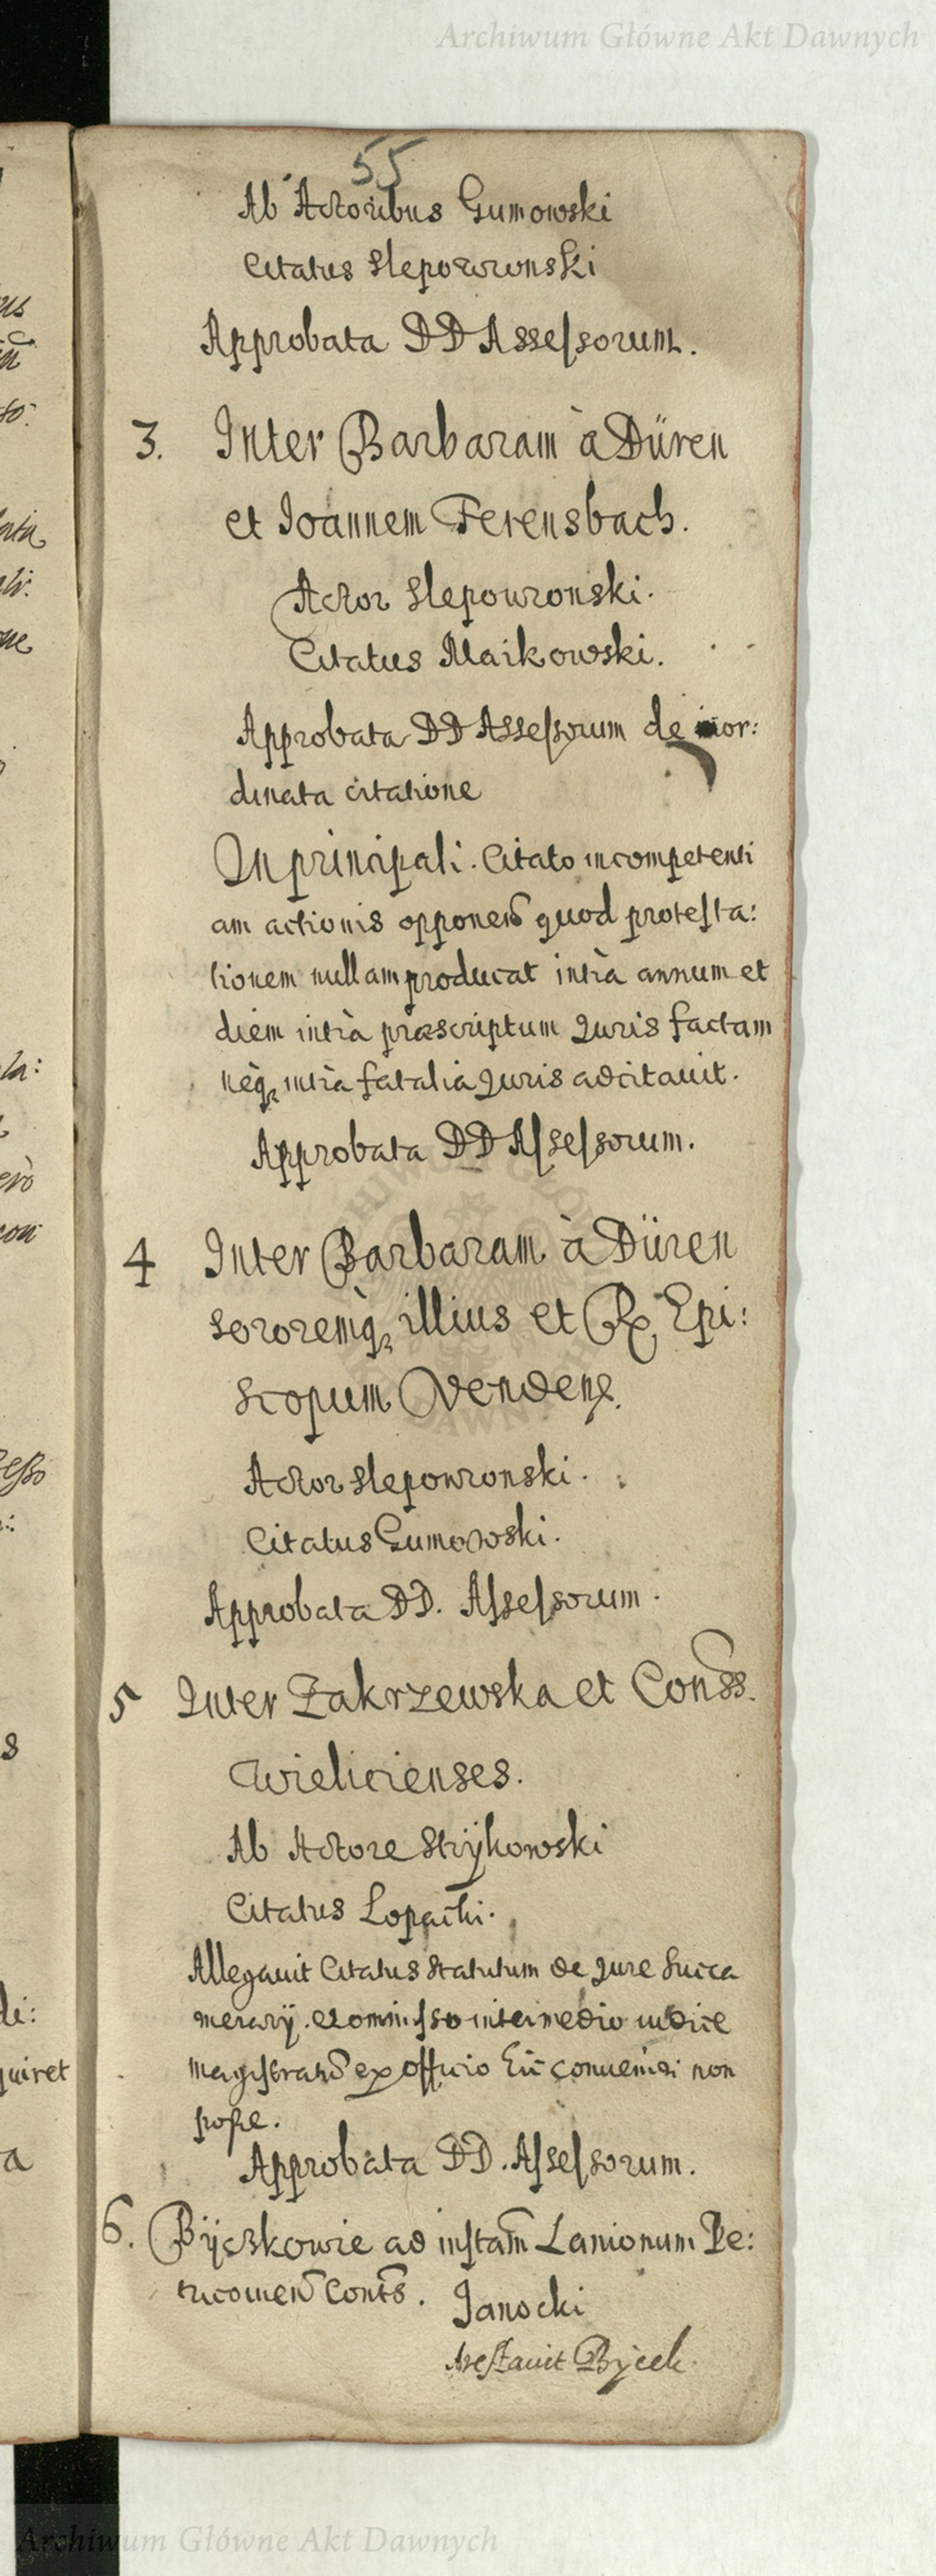 Archiwum Główne Akt Dawnych
55
Ab Actoribus Gumowski
Citatus Slepowronski
Approbata DD Assessorum.
3. Inter Barbaram à Düren
et Ioannem Ferensbach.
Actor Slepowronski.
Citatus Maikowski.
Approbata DD Assessorum de inor:
dinata citatione
In principali. Citato incompetenti
am actionis opponen̄ quod protesta:
tionem nullam producat intrà annum et
diem intrà præscriptum Juris factam
neq, intrà fatalia Juris adcitauit.
Approbata DD Assessorum.
4 Inter Barbaram à Düren
sororemq, illius et R. Epi:
scopum Vendens.
Actor Slepowronski.
Citatus Gumowski.
Approbata DD. Assessorum.
5 Inter Zakrzewska et Conss.
Wielicienses.
Ab Actore Strÿkowski
Citatus Lopacki.
Allegauit Citatus Statutum de Jure Succa
merarÿ. et omisso intermedio iudice
magistratū ex officio conueniri non
posse.
Approbata DD. Assessorum.
6. Bÿczkowie ad instam̄ Lanionum Pe:
tricouien̄ Conts. Janocki
Arestauit Bycek.
Archiwum Główne Akt Dawnych